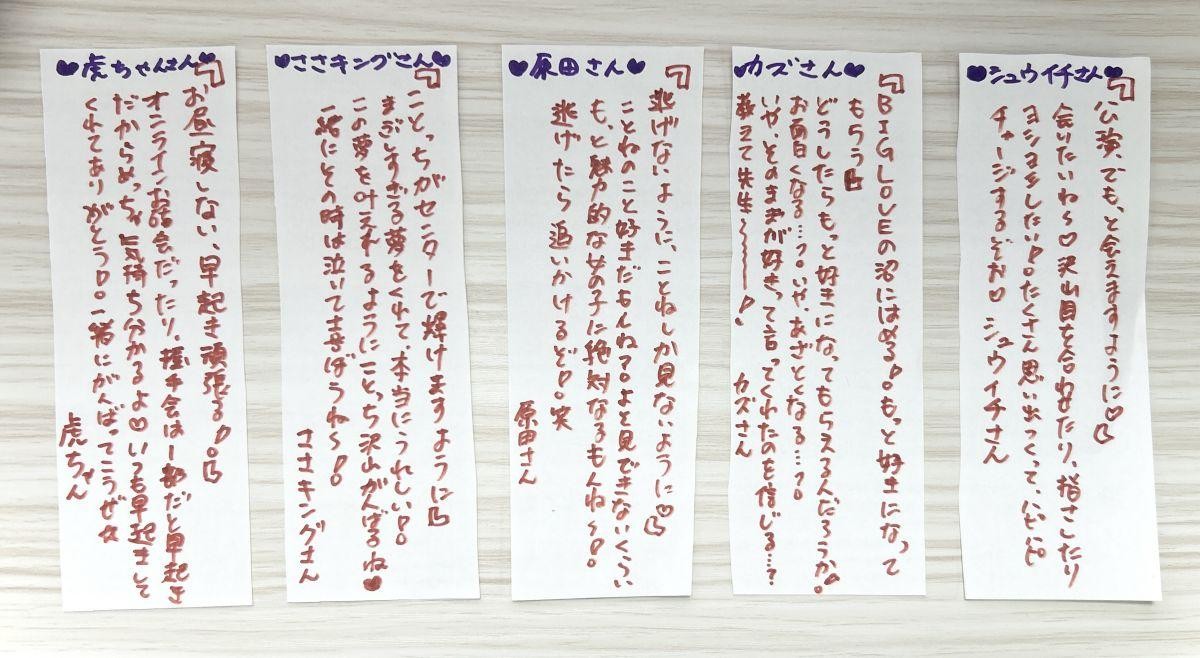 ♥虎ちゃんさん♥
『お昼寝しない、早起き頑張る!。』
オンラインお話会だったり、握手会は一部だと早起き
だからめっちゃ気持ち分かるよ♡いつも早起きして
くれてありがとう!。一緒にがんばってこうぜ☆
虎ちゃん
♥ささキングさん♥
『ことっちがセンターで輝けますように』
まぶしすぎる夢をくれて、本当にうれしい!。
この夢を叶えれるようにことっち沢山がんばるね♥
一緒にその時は泣いて喜ぼうね〜!。
ささキングさん
♥原田さん♥
『逃げないように、ことねしか見ないように♡』
ことねのこと好きだもんね?。よそ見できないくらい
もっと魅力的な女の子に絶対なるもんね〜!。
逃げたら追いかけるぞ!。笑
原田さん
♥カズさん♥
『BIGLOVEの沼にはめる!。もっと好きになって
もらう』
どうしたらもっと好きになってもらえるんだろうか?。
お面白くなる…?。いや、あざとくなる…?。
いや、そのままが好きって言ってくれたのを信じる…?
教えて先生〜〜!
カズさん
♥シュウイチさん♥
『公演、でもっと会えますように♡』
会いたいね〜♡沢山目を合わせたり、指さしたり
ヨシヨシしたい!。たくさん思い出つくって、ハピハピ
チャージするぞぉ♡
シュウイチさん